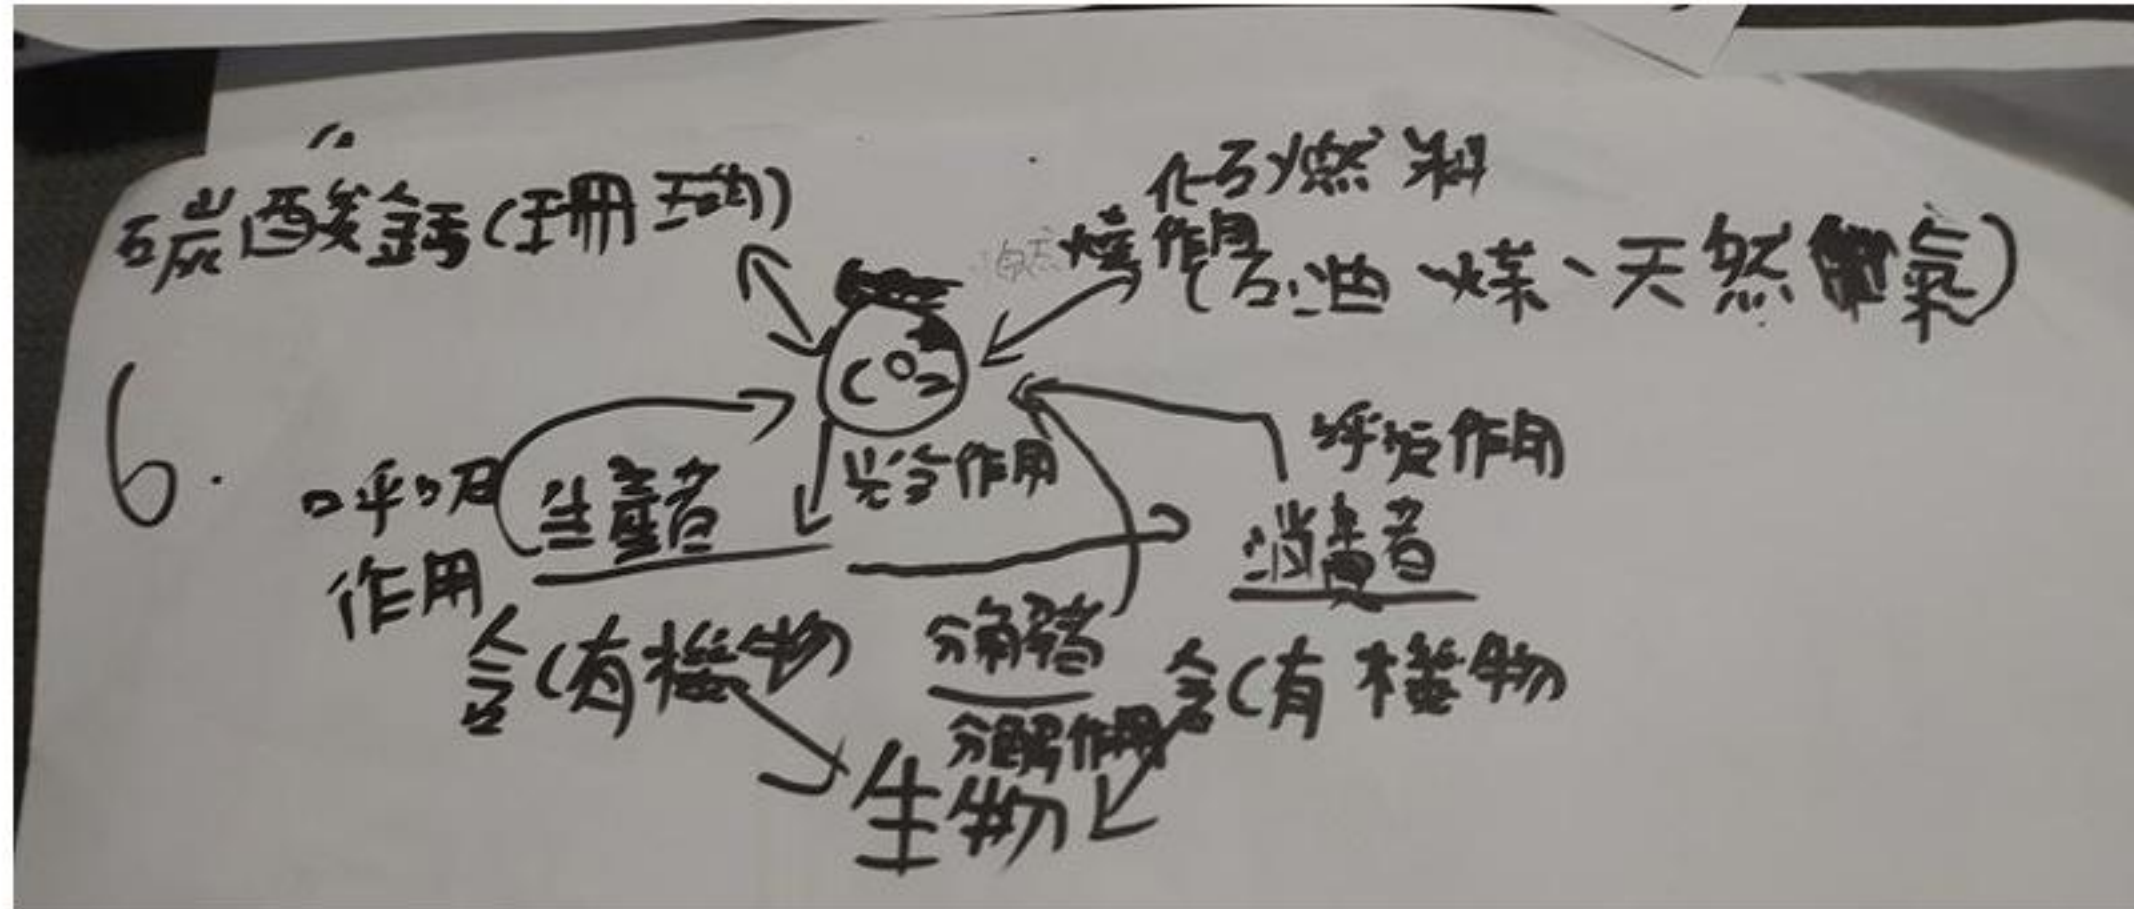 碳酸鈣(珊瑚)
化石燃料
燃燒作用
(石油 煤、天然氣)
CO2
6.
呼吸作用
生產者
光合作用
呼吸作用
消費者
含(有機物
分解者
含(有機物
分解作用
生物